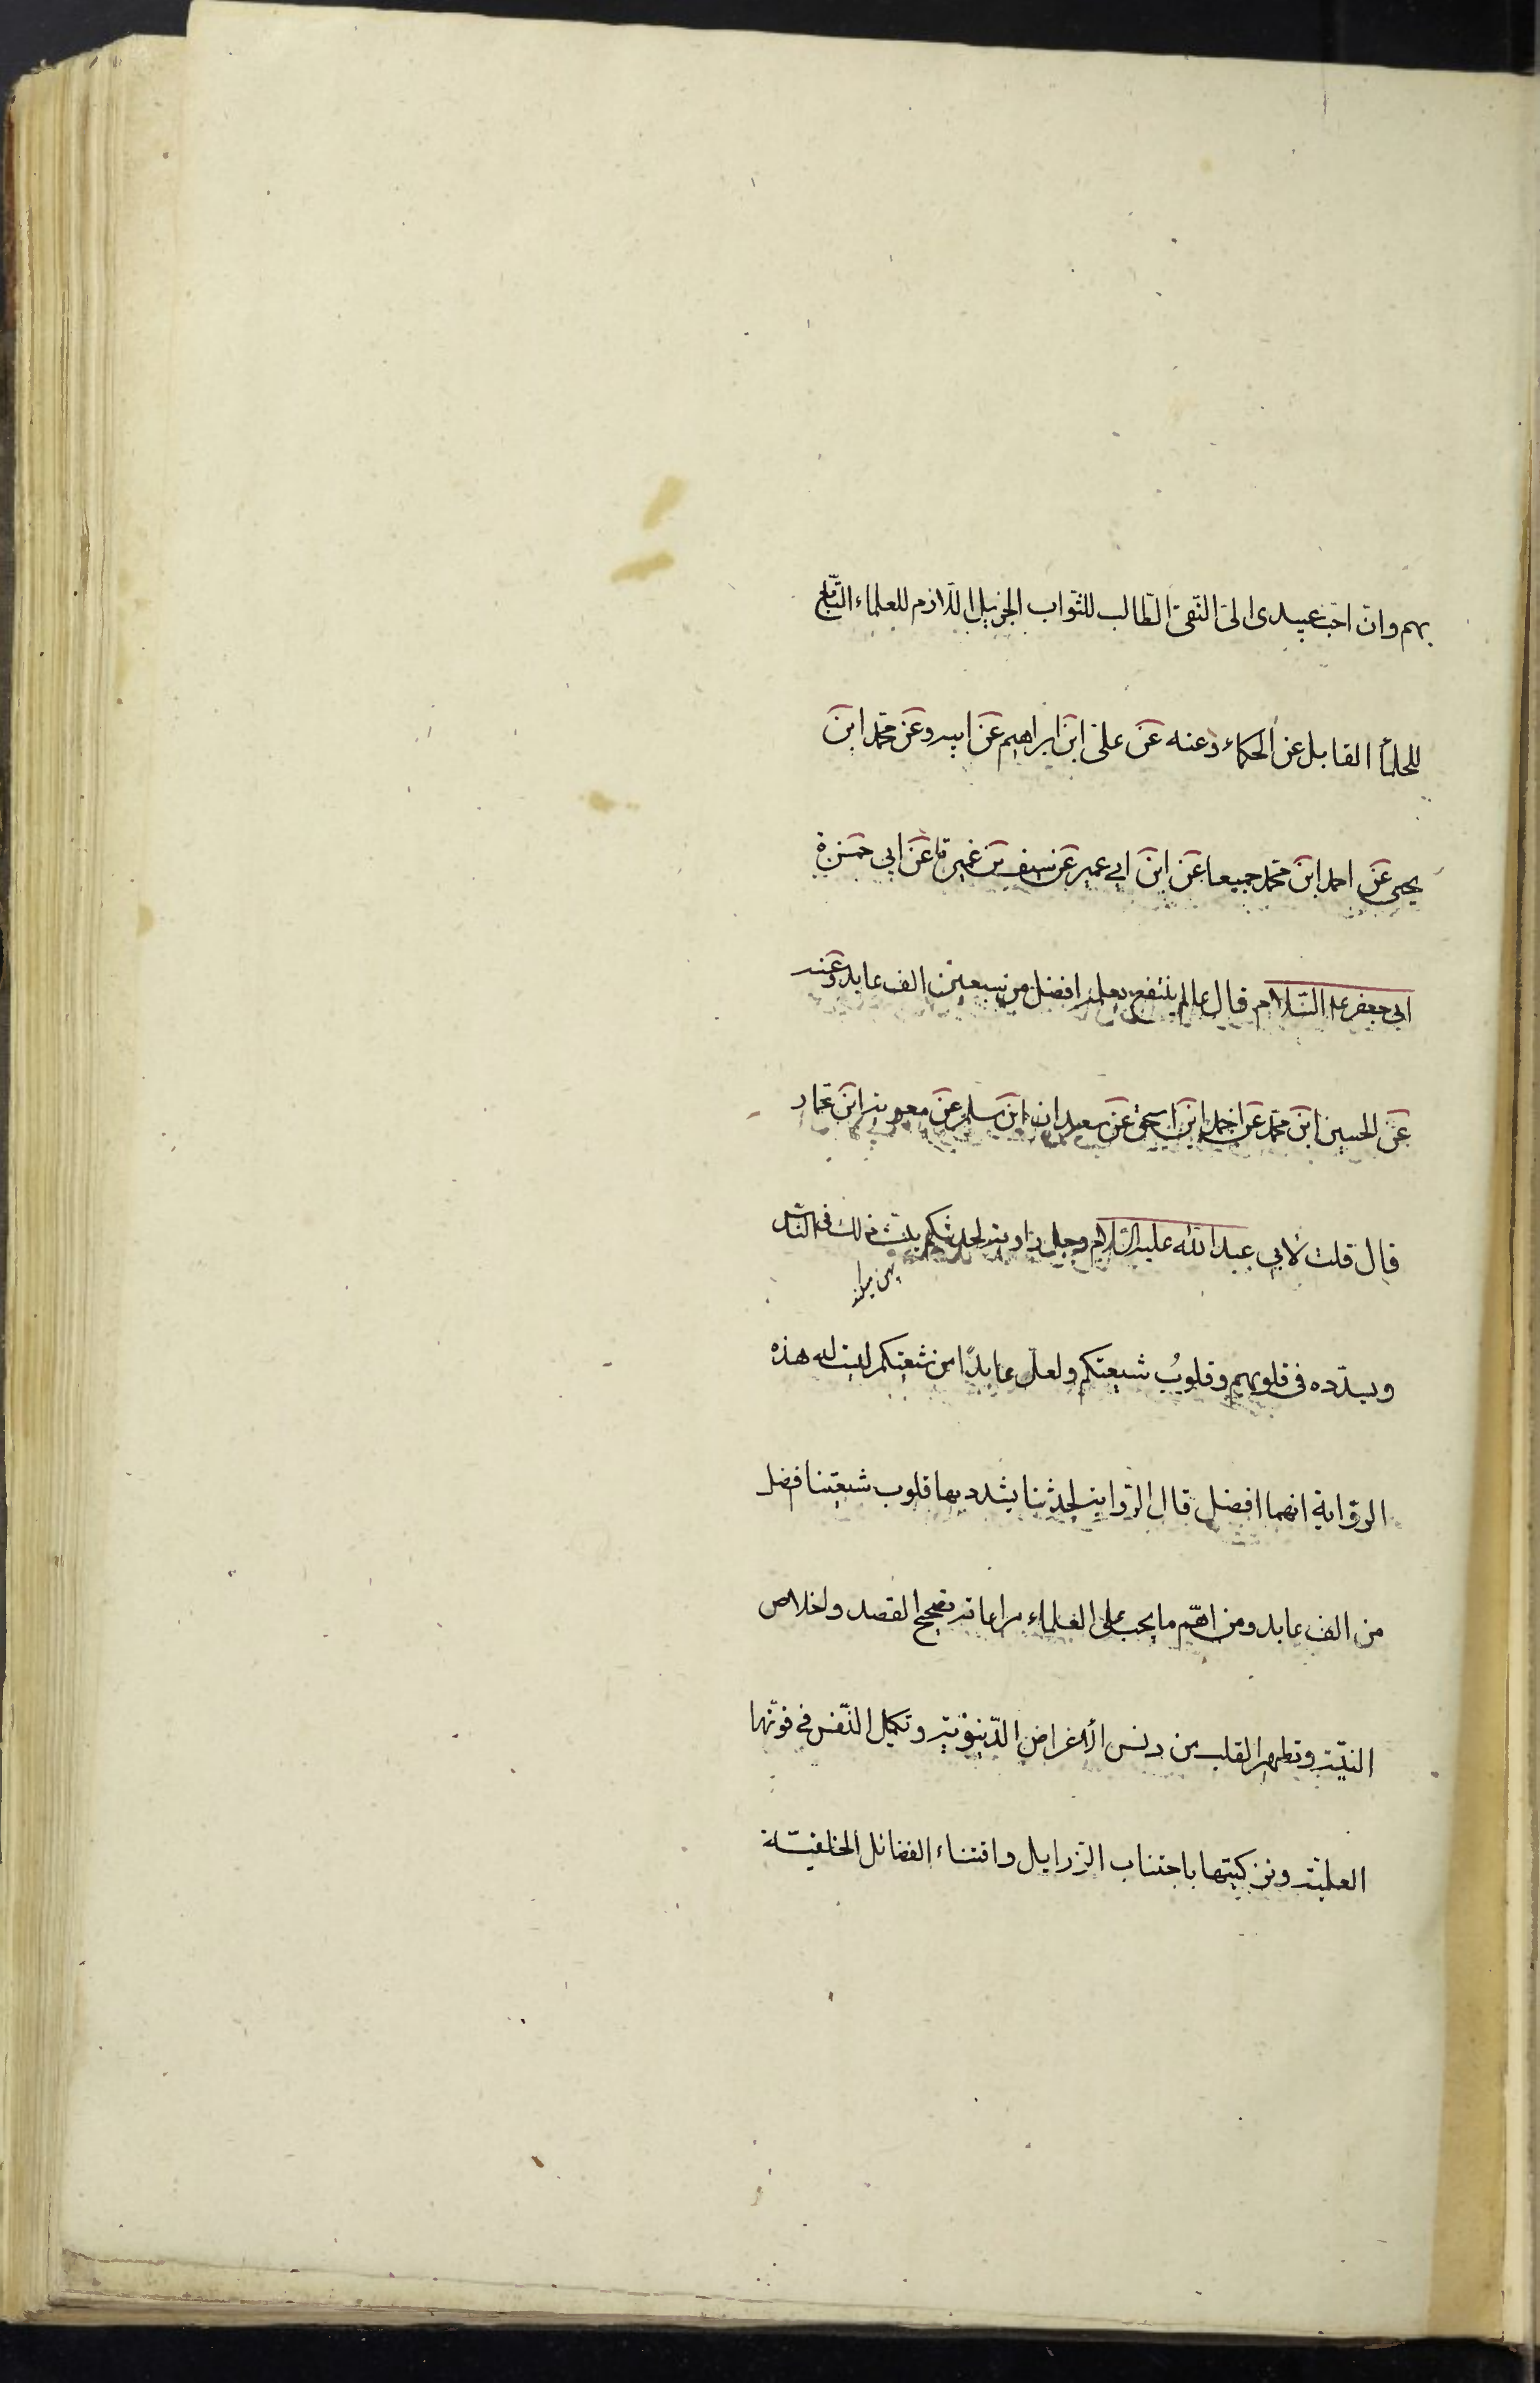 بهم وان احب عبیدی الی التقی الطالب للثواب الجزیل اللازم للعلماء التابع
للحلمأ القابل عن الحکماء وعنه عن علی ابن ابراهیم عن ابیه وعن محمد ابن
یحیی عن احمد ابن محمد جمیعا عن ابن ابي عمیر عن سیف بن عمیرة عن ابی حمزة
ابی جعفر علیه السّلام قال عالم ینتفع بعلمه افضل من سبعین الف عابد وعنه
عن الحسین ابن محمد عن احمد ابن اسحق عن سعدان ابن مسلم عن معویة ابن عمار
قال قلت لأبي عبد الله علیه السّلام رجل راویة لحدیثکم یبث ذلك فی الناس
ویسدّده فی قلوبهم وقلوبُ شیعتکم ولعل عابدًا من شیعتکم لیست له هذه
الرّوایة ایهما افضل قال الرّوایة لحدیثنا یشدد بها قلوب شیعتنا افضل
من الف عابد ومن اهمّ ما یجب علی العلماء مراعاته تصحیح القصد واخلاص
النیّة وتطهیر القلب من دنس الأغراض الدّنیویّة وتکمیل النّفس فی قوتها
العلمیّة وتزکیتها باجتناب الرّزایل واقتناء الفضائل الخلقیّة